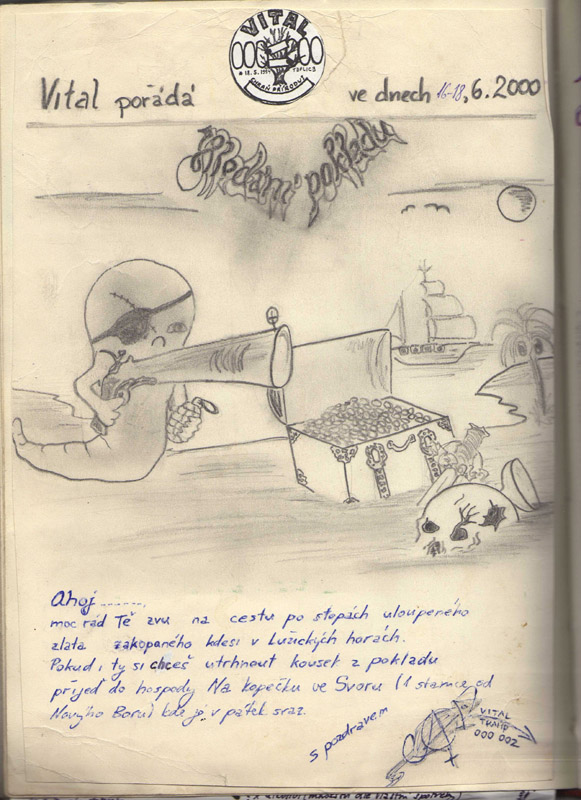 VITAL
000 000
* 18. 5. 1994 TEPLICE
CHRAŇ PŘÍRODU!
Vital pořádá ve dnech 16-18, 6. 2000
Hledání pokladu
Ahoj .......,
moc rád Tě zvu na cestu po stopách uloupeného
zlata zakopaného kdesi v Lužických horách.
Pokud i ty si chceš utrhnout kousek z pokladu
přijeď do hospody Na kopečku ve Svoru (1 stanice od
Novýho Boru) kde je v pátek sraz.
s pozdravem
VITAL
000 002